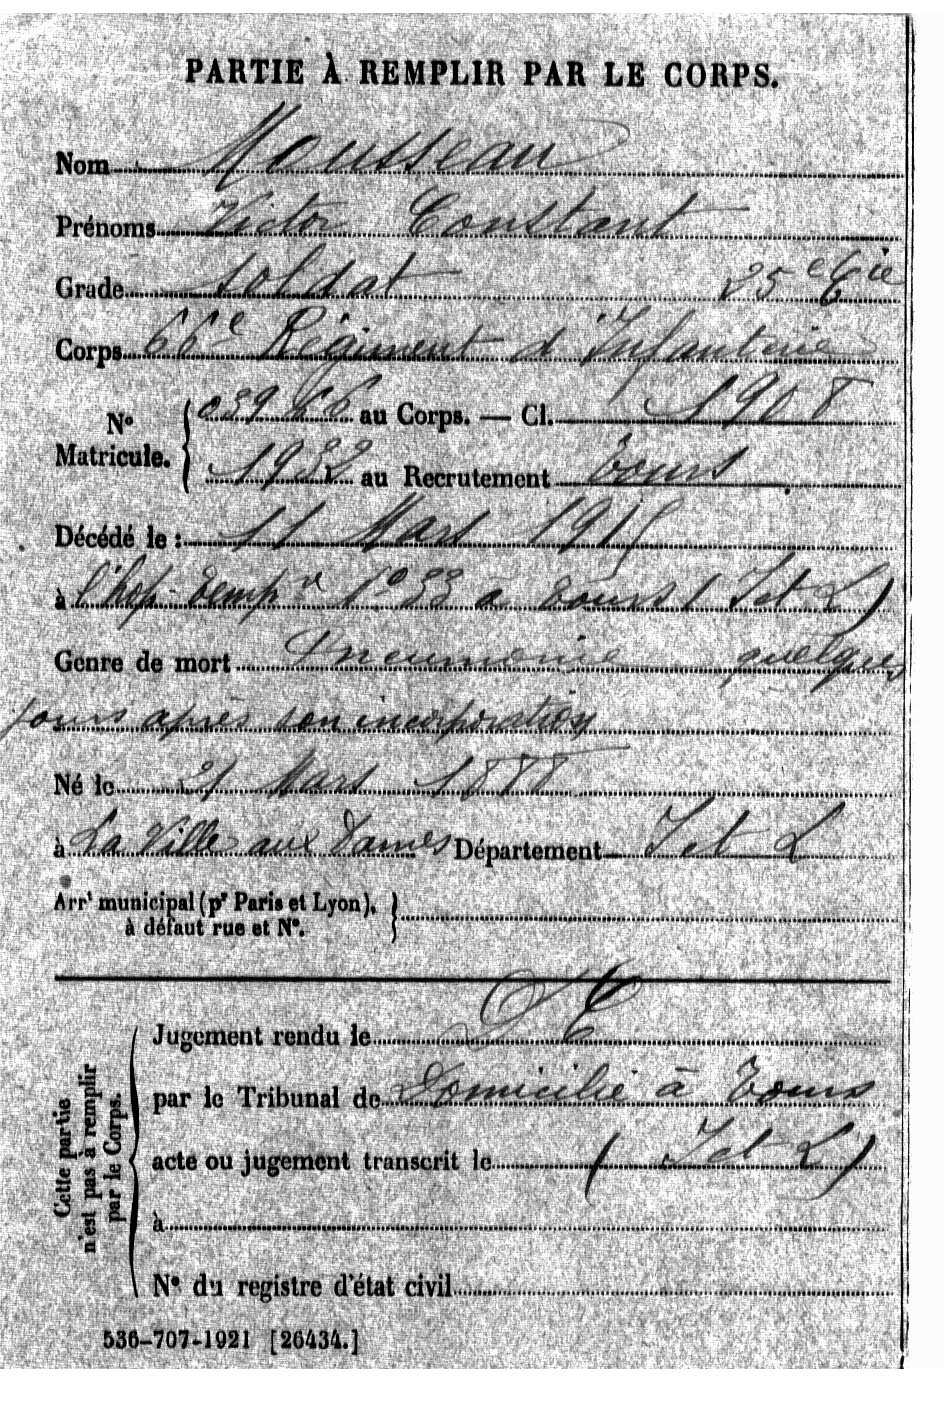 PARTIE À REMPLIR PAR LE CORPS.
Nom Mousseau
Prénoms Victor Constant
Grade soldat 25e Cie
Corps 66e Régiment d'Infanterie
No Matricule. 03966 au Corps. — Cl. 1908
1932 au Recrutement Tours
Décédé le : 11 Mars 1915
à l'hop. temp. no 33 a Tours (I et L)
Genre de mort Pneumonie quelques
jours après son incorporation
Né le 21 Mars 1888
à La Ville aux Dames Département I et L
Arrt municipal (pr Paris et Lyon),
à défaut rue et No.
Jugement rendu le
par le Tribunal de Domicilié à Tours
acte ou jugement transcrit le (I et L)
à
No du registre d'état civil
Cette partie
n'est pas à remplir
par le Corps.
536-707-1921 [26434.]